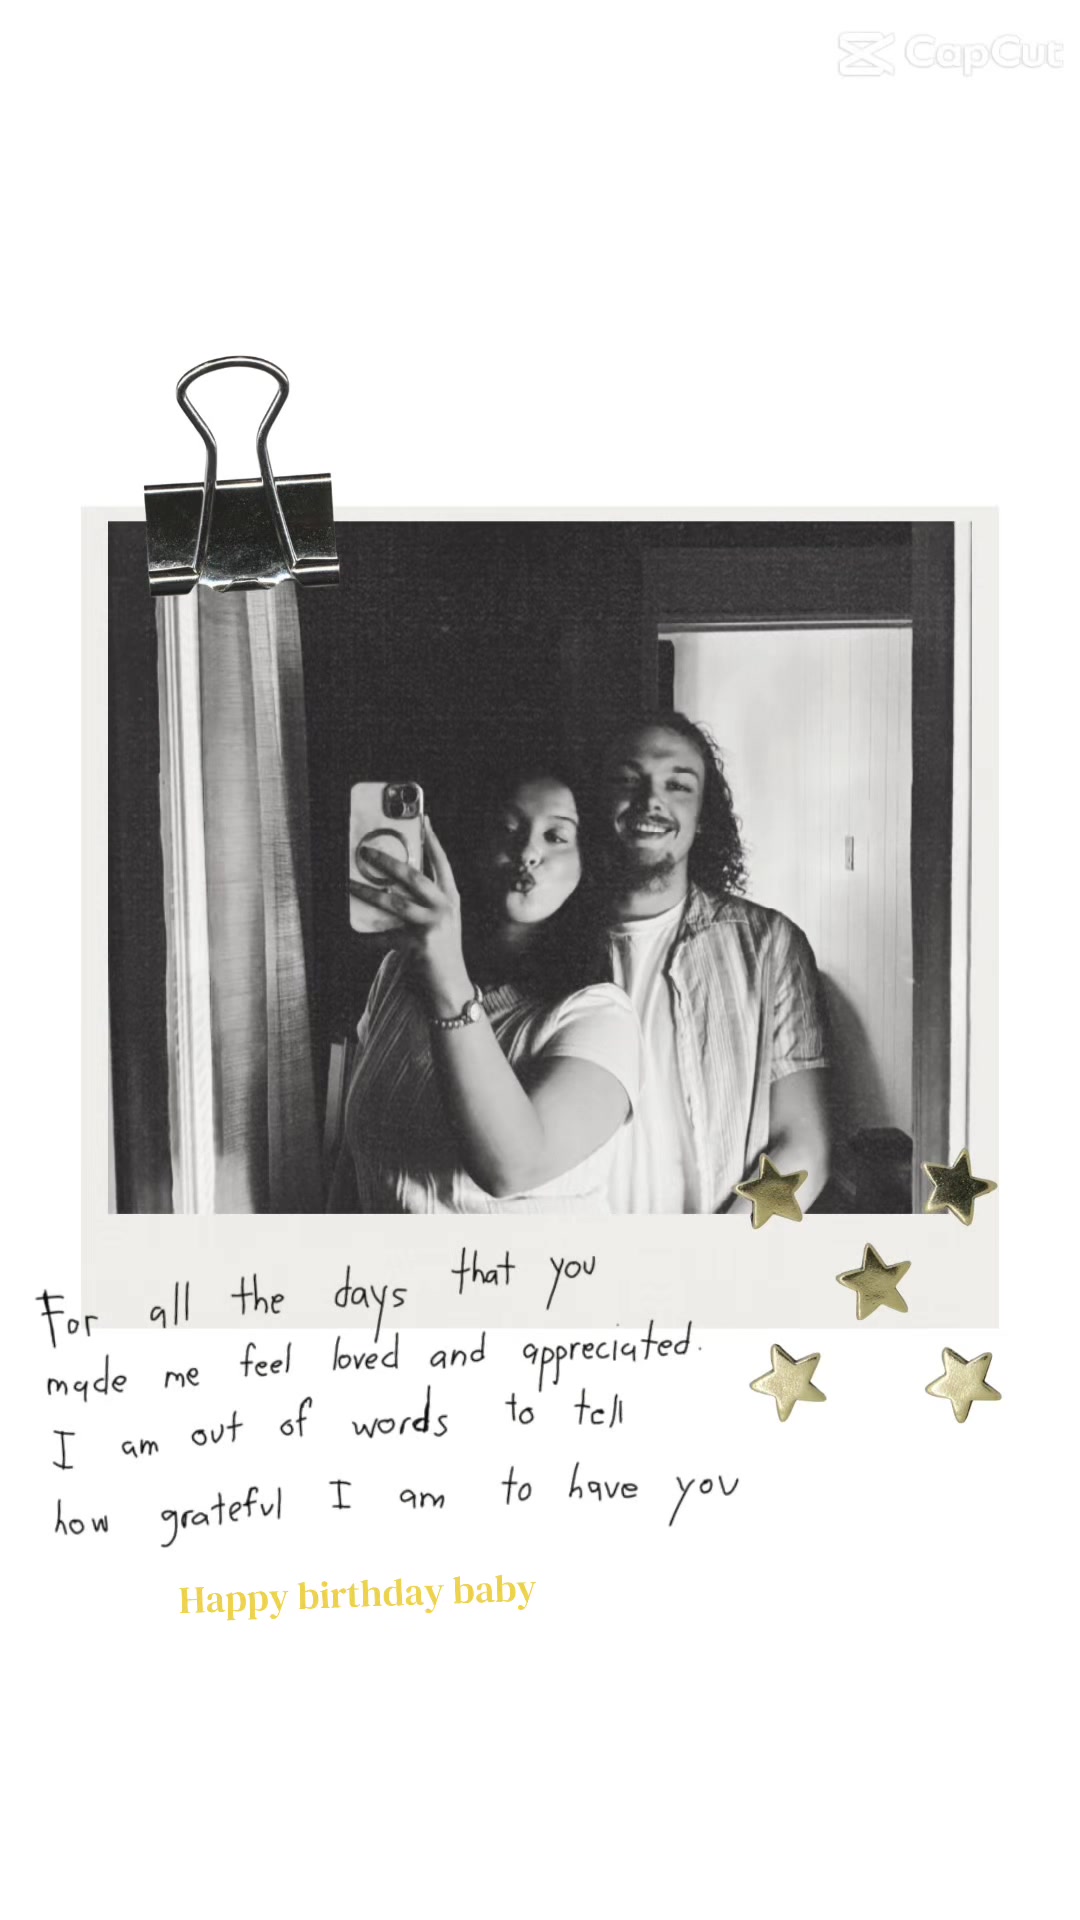 CapCut
For all the days that you
made me feel loved and appreciated.
I am out of words to tell
how grateful I am to have you
Happy birthday baby